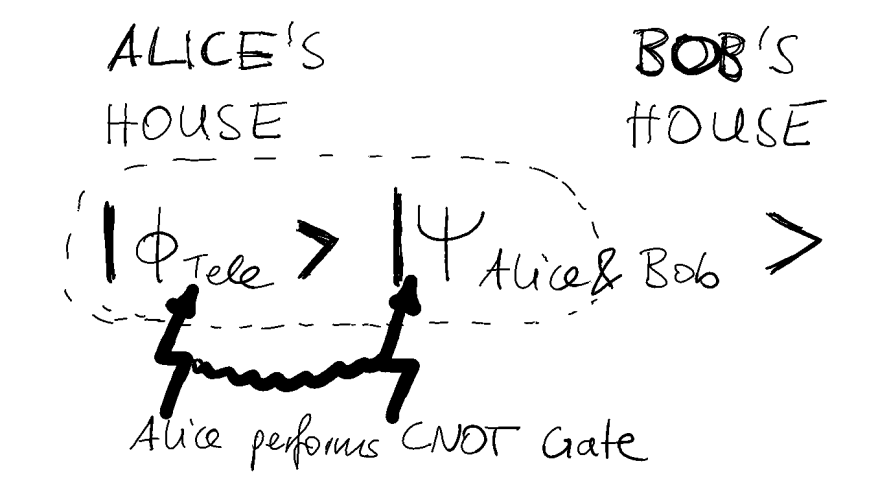 ALICE'S BOB'S
HOUSE HOUSE
|ϕTele> |ΨAlice& Bob >
Alice performs CNOT Gate